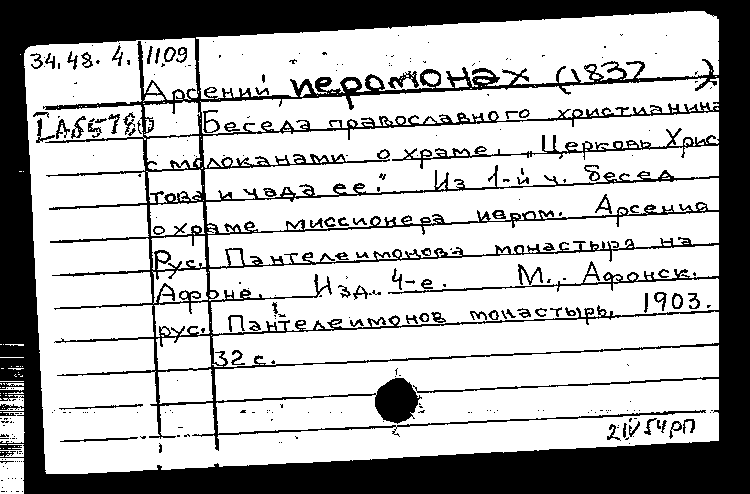 34.48. 4. 1109
Арсений, иеромонах (1837 ).
IA65780 Беседа православного христианина
с молоканами о храме. „Церковь Хрис-
това и чада ее." Из 1-й ч. бесед
о храме миссионера иером. Арсения
Рус. Пантелеимонова монастыря на
Афоне. Изд. 4-е. М., Афонск.
рус. Пантелеимонов монастырь, 1903.
32 с.